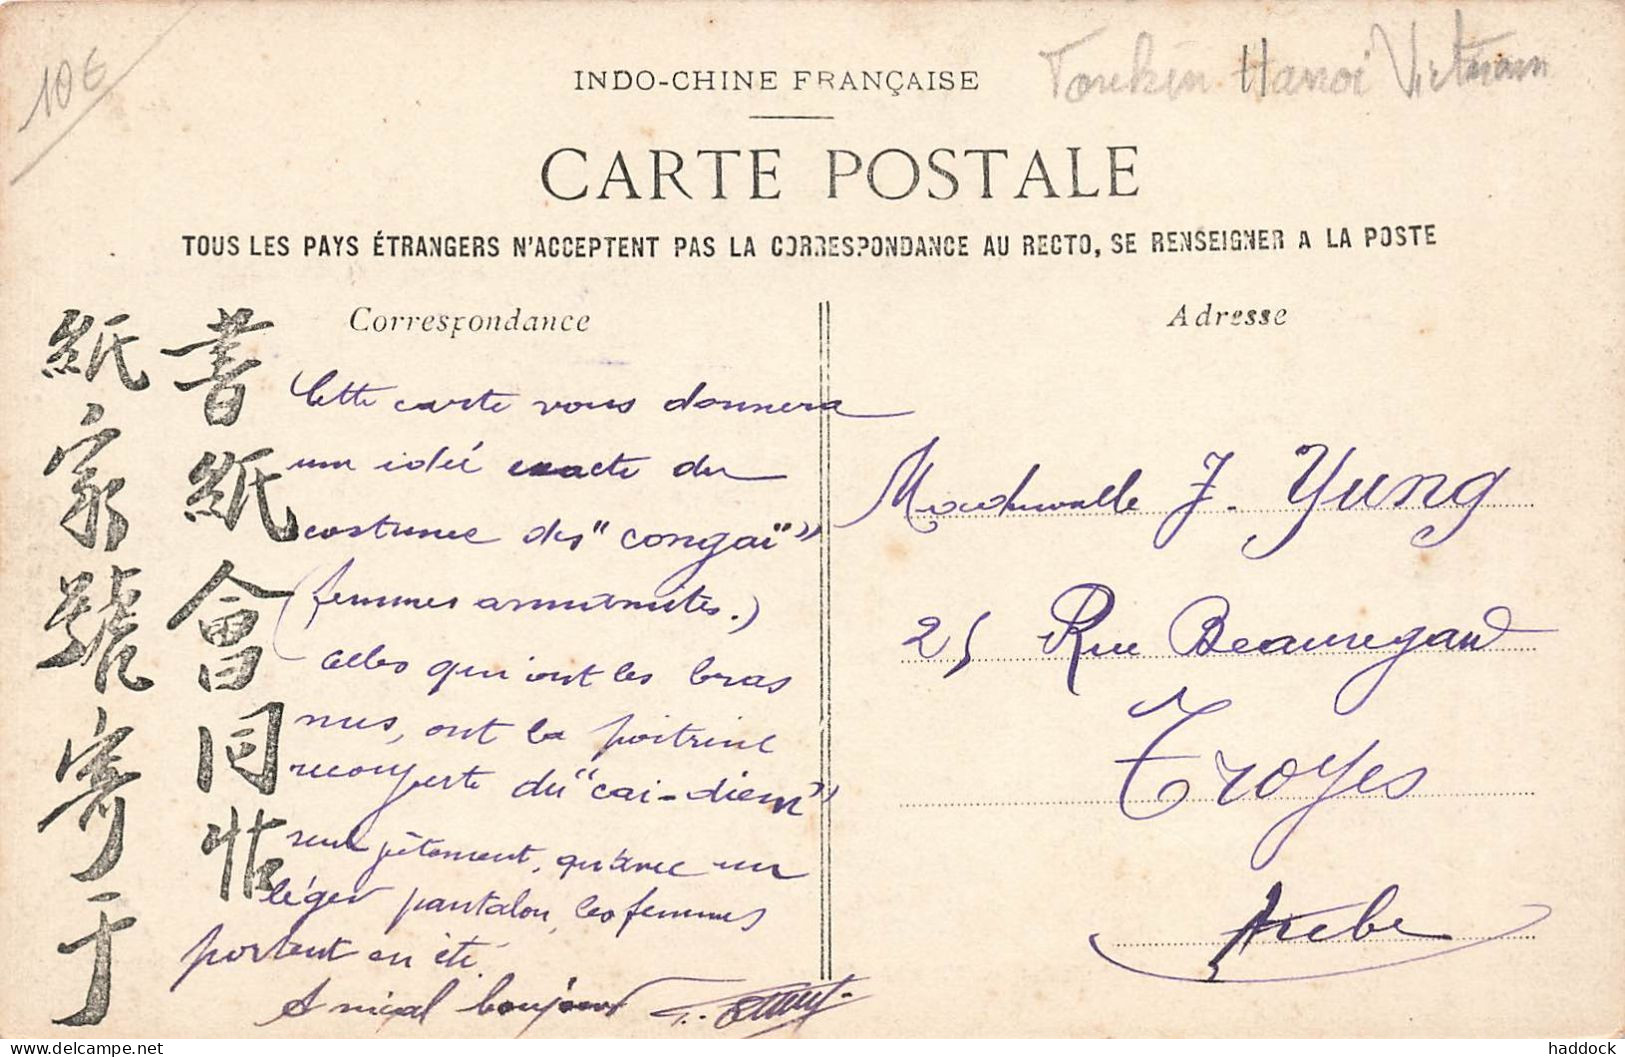 10€
INDO-CHINE FRANÇAISE
Tonkin Hanoi Vietnam
CARTE POSTALE
TOUS LES PAYS ÉTRANGERS N'ACCEPTENT PAS LA CORRESPONDANCE AU RECTO, SE RENSEIGNER A LA POSTE
書紙會同帖
紙家號寄于
Correspondance
Cette carte vous donnera
une idée exacte du
costume des "congaï"
(femmes annamites.)
celles qui ont les bras
nus, ont la poitrine
recouverte du "cai-diem"
seul vêtement, qu'avec un
léger pantalon, les femmes
portent en été.
Amical bonjour
Adresse
Mademoiselle J. Yung
25 Rue Beauregard
Troyes
Aube
haddock